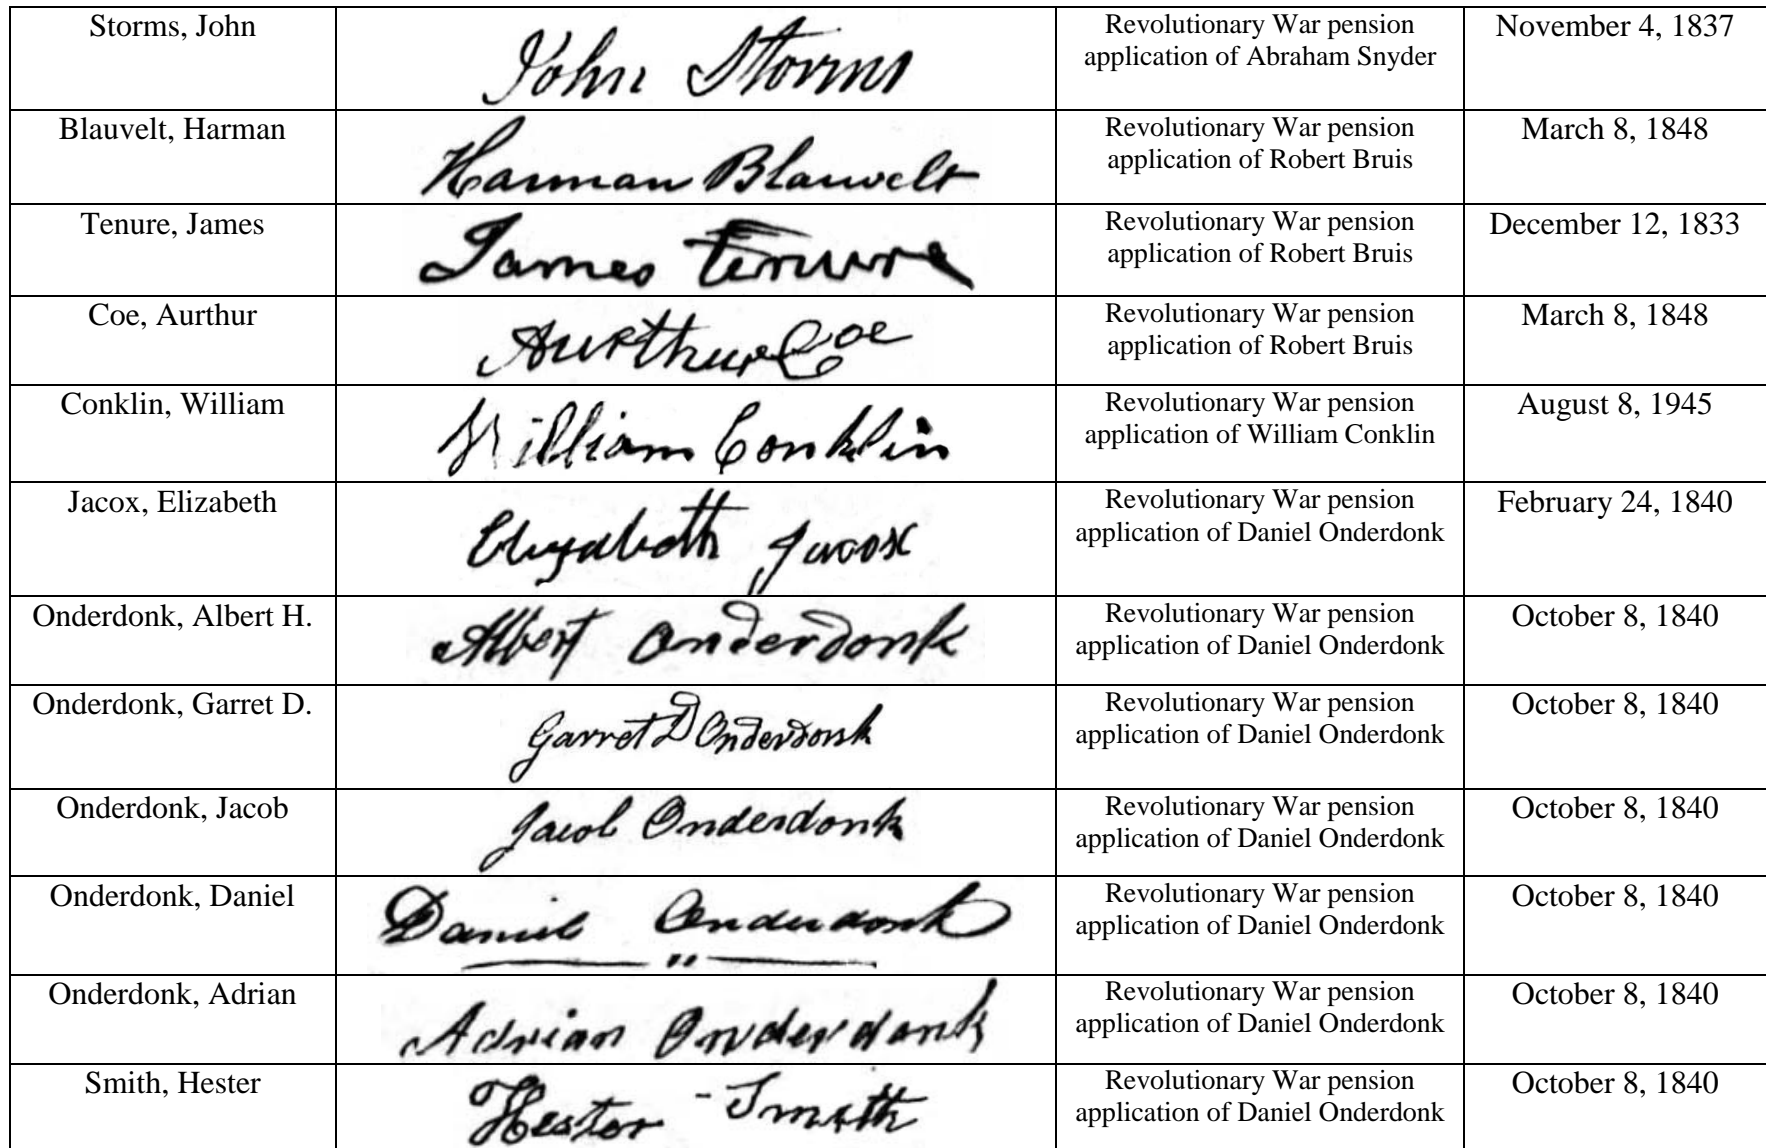 Storms, John
John Storms
Revolutionary War pension
application of Abraham Snyder
November 4, 1837
Blauvelt, Harman
Harman Blauvelt
Revolutionary War pension
application of Robert Bruis
March 8, 1848
Tenure, James
James Tenure
Revolutionary War pension
application of Robert Bruis
December 12, 1833
Coe, Aurthur
Aurthur Coe
Revolutionary War pension
application of Robert Bruis
March 8, 1848
Conklin, William
William Conklin
Revolutionary War pension
application of William Conklin
August 8, 1945
Jacox, Elizabeth
Elizabeth Jacox
Revolutionary War pension
application of Daniel Onderdonk
February 24, 1840
Onderdonk, Albert H.
Albert Onderdonk
Revolutionary War pension
application of Daniel Onderdonk
October 8, 1840
Onderdonk, Garret D.
Garret D Onderdonk
Revolutionary War pension
application of Daniel Onderdonk
October 8, 1840
Onderdonk, Jacob
Jacob Onderdonk
Revolutionary War pension
application of Daniel Onderdonk
October 8, 1840
Onderdonk, Daniel
Daniel Onderdonk
Revolutionary War pension
application of Daniel Onderdonk
October 8, 1840
Onderdonk, Adrian
Adrian Onderdonk
Revolutionary War pension
application of Daniel Onderdonk
October 8, 1840
Smith, Hester
Hester Smith
Revolutionary War pension
application of Daniel Onderdonk
October 8, 1840